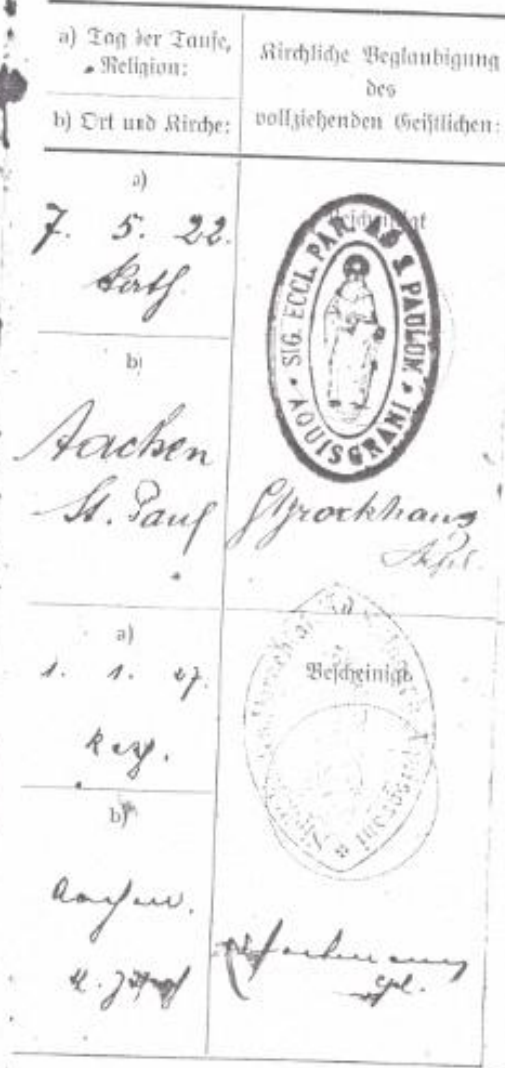 a) Tag der Taufe,
Religion:
b) Ort und Kirche:
Kirchliche Beglaubigung
des
vollziehenden Geistlichen:
a)
7. 5. 22.
kath.
b)
Aachen
St. Paul
Bescheinigt
SIG. ECCL. PAR. AD S PAULUM
AQUISGRANI
Brockhaus
a)
1. 1. 27.
kath.
b)
Aachen.
Bescheinigt